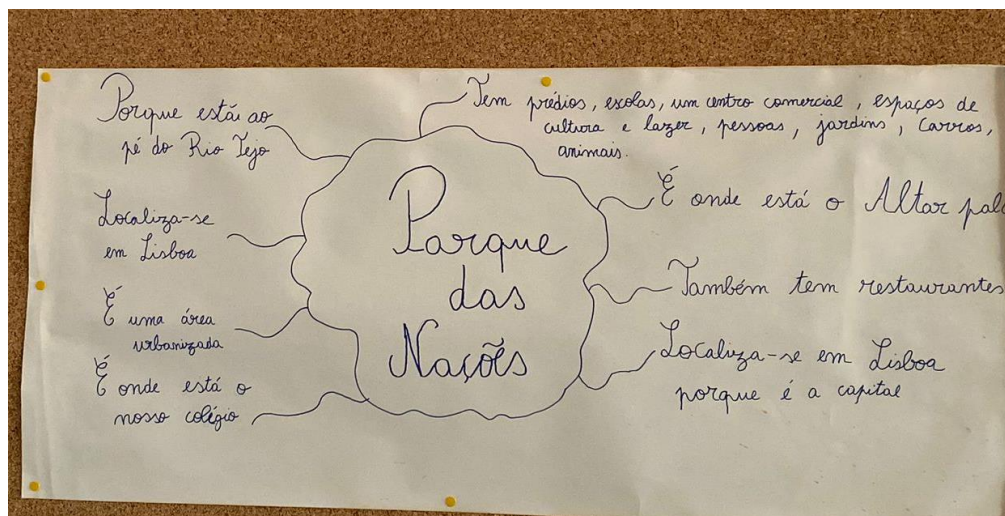 Porque está ao
pé do Rio Tejo
Localiza-se
em Lisboa
É uma área
urbanizada
É onde está o
nosso colégio
Parque
das
Nações
Tem prédios, escolas, um centro comercial, espaços de
cultura e lazer, pessoas, jardins, carros,
animais.
É onde está o Altar
Também tem restaurantes
Localiza-se em Lisboa
porque é a capital